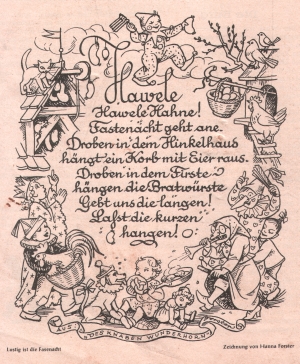 Hawele
Hawele Hahne!
Fastenacht geht ane.
Droben in dem Hinkelhaus
hängt ein Korb mit Eier raus.
Droben in dem Firste
hängen die Bratwürste
Gebt uns die langen!
Laßt die kurzen
hangen!
AUS DES KNABEN WUNDERHORN
Lustig ist die Fasenacht
Zeichnung von Hanna Forster